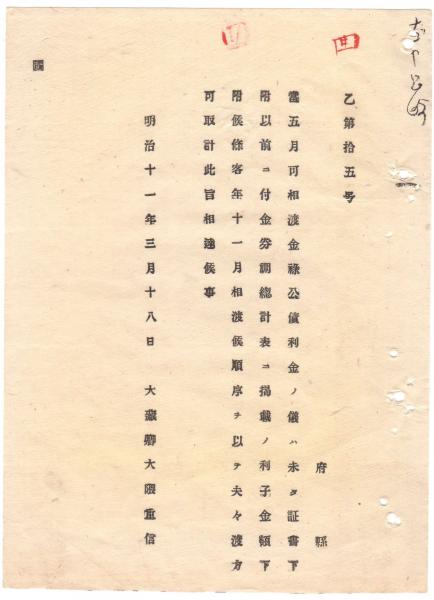 乙第拾五号
府縣
當五月可相渡金祿公債利金ノ儀ハ未タ証書下
附以前ニ付金券調總計表ニ掲載ノ利子金額下
附候條客年十一月相渡候順序ヲ以テ夫々渡方
可取計此旨相達候事
明治十一年三月十八日 大藏卿大隈重信